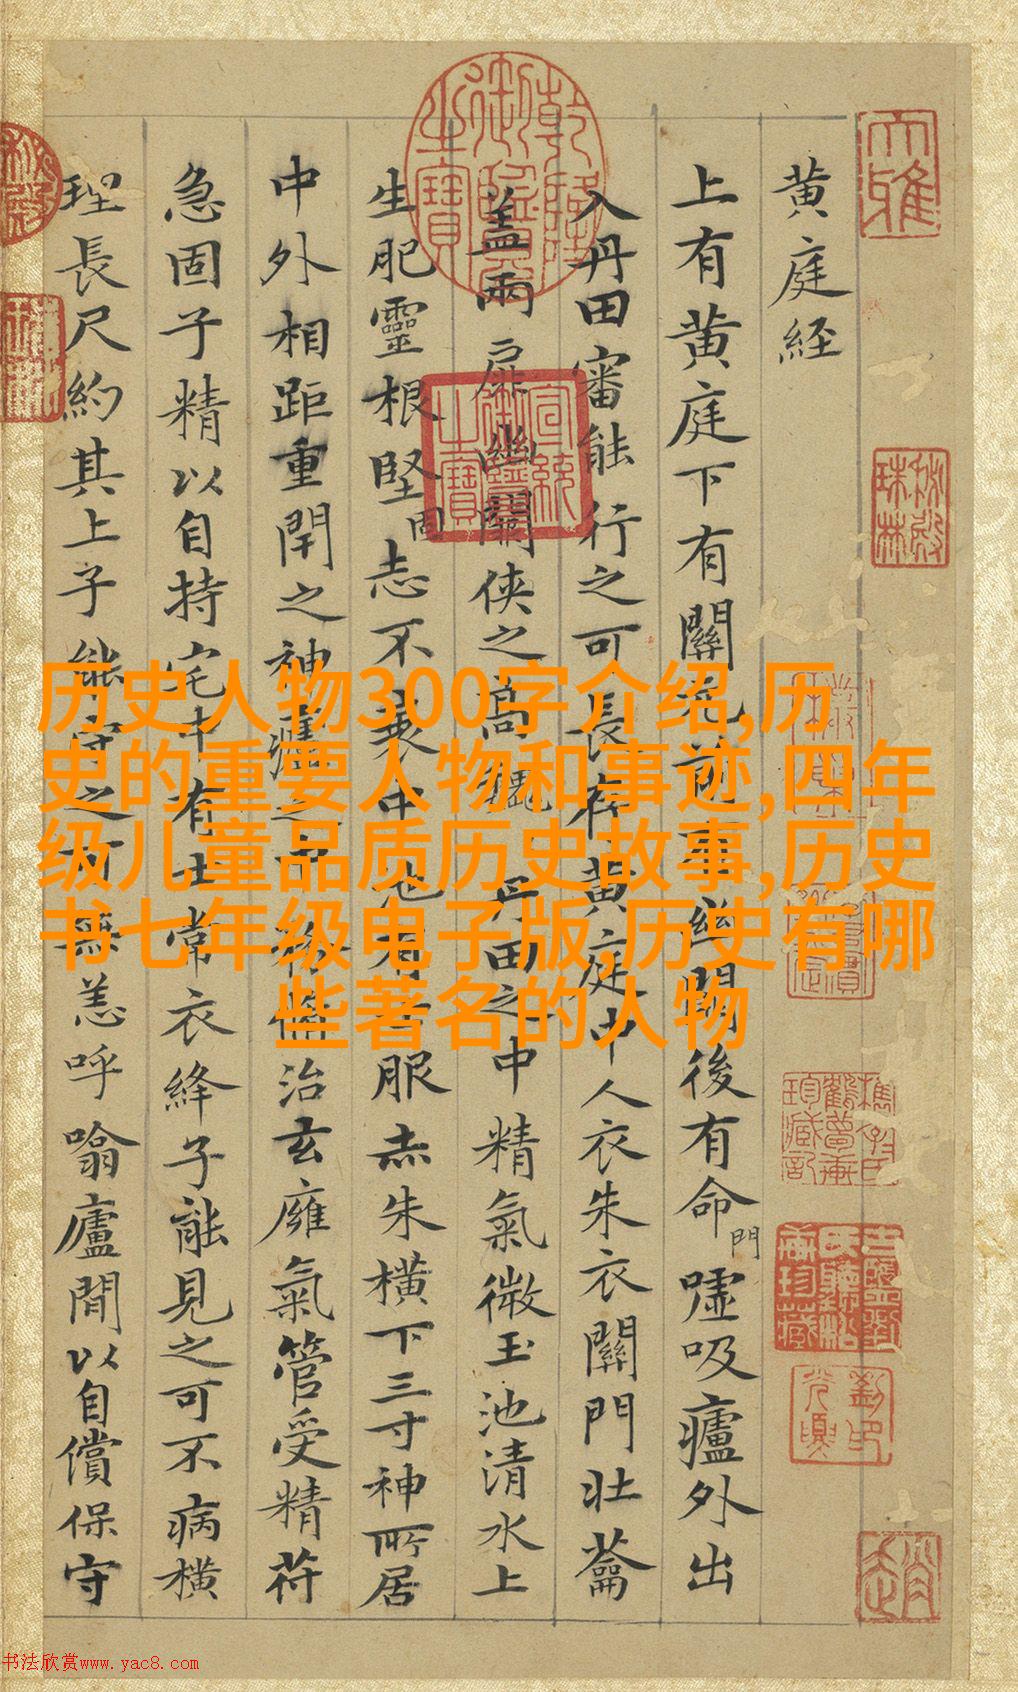 黄庭経
上有黄庭下有關元前幽闕後有命門嘘吸廬外出
入丹田審能行之可長存黄庭中人衣朱衣關門壯籥
蓋兩扉幽關俠之高巍丹田之中精氣微玉池清水上
生肥靈根堅固志不衰中池有士服赤朱橫下三寸神所居
中外相距重閇之神廬之中務脩治玄廱氣管受精符
急固子精以自持宅中有士常衣絳子能見之可不病橫
理長尺約其上子能守之可無恙呼噏廬間以自償保守
大雅
乾隆御覽之寶
宣統御覽之寶
秘殿珠林
历史人物300字介绍,历
史的重要人物和事迹,四年
级儿童品质历史故事,历史
书七年级电子版,历史有哪
些著名的人物
书法欣赏www.yac8.com